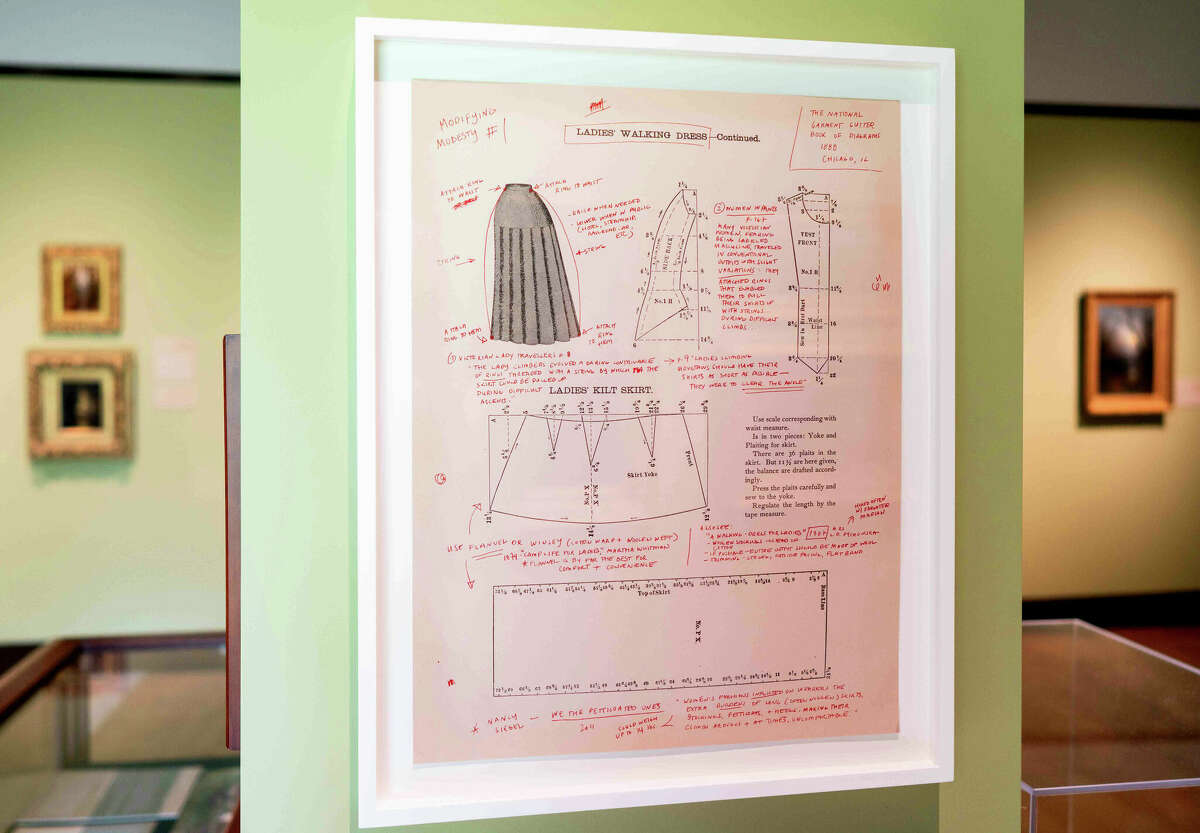 MODIFYING
MODESTY #1
LADIES' WALKING DRESS—Continued.
THE NATIONAL
GARMENT CUTTER
BOOK OF DIAGRAMS
1888
CHICAGO, IL
ATTACH RING
TO WAIST
ATTACH
RING TO WAIST
- RAISE WHEN NEEDED
- LOWER WHEN IN PUBLIC
(HOTEL, STEAMSHIP,
RAILROAD CAR,
ETC)
STRING
STRING
ATTACH
RING TO HEM
ATTACH
RING
TO HEM
SIDE BACK
No. 1 B
② WOMEN IN PANTS
P. 167
MANY VICTORIAN
WOMEN, FEARING
BEING LABELED
MASCULINE, TRAVELED
IN CONVENTIONAL
OUTFITS WITH SLIGHT
VARIATIONS - THEY
ATTACHED RINGS
THAT ENABLED
THEM TO PULL
THEIR SKIRTS UP
WITH STRINGS
DURING DIFFICULT
CLIMBS.
VEST
FRONT
No. 1 B
Sew in First Dart
Waist
Line
① VICTORIAN LADY TRAVELLERS P. 8
"THE LADY CLIMBERS EVOLVED A DARING CONTRIVANCE
OF RINGS THREADED WITH A STRING BY WHICH THE
SKIRT COULD BE PULLED UP
DURING DIFFICULT
ASCENTS."
P. 9 "LADIES CLIMBING
MOUNTAINS SHOULD HAVE THEIR
SKIRTS AS SHORT AS POSSIBLE—
THEY WERE TO CLEAR THE ANKLE"
LADIES' KILT SKIRT.
Skirt Yoke
Front
No. P X
No. P X
Use scale corresponding with
waist measure.
Is in two pieces: Yoke and
Plaiting for skirt.
There are 36 plaits in the
skirt. But 11½ are here given,
the balance are drafted accord-
ingly.
Press the plaits carefully and
sew to the yoke.
Regulate the length by the
tape measure.
USE FLANNEL OR WINSEY (COTTON WARP + WOOLEN WEFT)
1879 "CAMP LIFE FOR LADIES," MARTHA WHITMAN
* FLANNEL IS BY FAR THE BEST FOR
COMFORT + CONVENIENCE
ALSO SEE:
"A WALKING-DRESS FOR LADIES"
- WOOLEN STOCKINGS INSTEAD OF
COTTON
- IF POSSIBLE - ENTIRE OUTFIT SHOULD BE MADE OF WOOL
- TRIMMING - STRONG, OUTSIDE FACING, FLAT BAND
Top of Skirt
Base Line
No. P X
* NANCY
SIEGEL
— WE THE PETTICOATED ONES
COULD WEIGH
UP TO 14 LBS
- WOMEN'S FASHIONS INFLICTED ON WEARERS THE
EXTRA BURDENS OF LONG (OFTEN WOOLEN) SKIRTS,
STOCKINGS, PETTICOATS + HEELS - MAKING THEIR
CLIMBS ARDUOUS + AT TIMES, UNCOMFORTABLE.